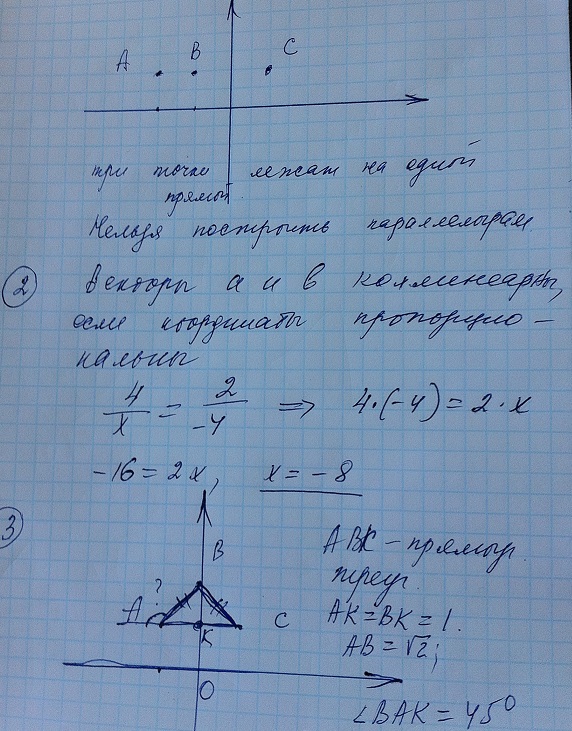 A B C
три точки лежат на одной
прямой
Нельзя построить параллелограм
2 Векторы a и b коллинеарны,
если координаты пропорцио-
нальны
4/x = 2/-4 => 4·(-4) = 2·x
-16 = 2x, x = -8
3
B
ABK - прямоуг.
треуг.
? A K C
AK = BK = 1.
AB = √2;
O
∠BAK = 45°